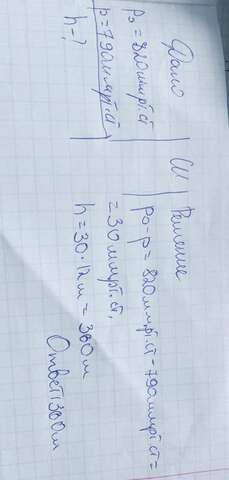 Дано
P₀ = 820 мм.рт.ст
p = 790 мм.рт.ст
h - ?
СИ
Решение
P₀ - p = 820 мм.рт.ст - 790 мм.рт.ст =
= 30 мм.рт.ст.
h = 30 · 12 м = 360 м
Ответ: 360 м